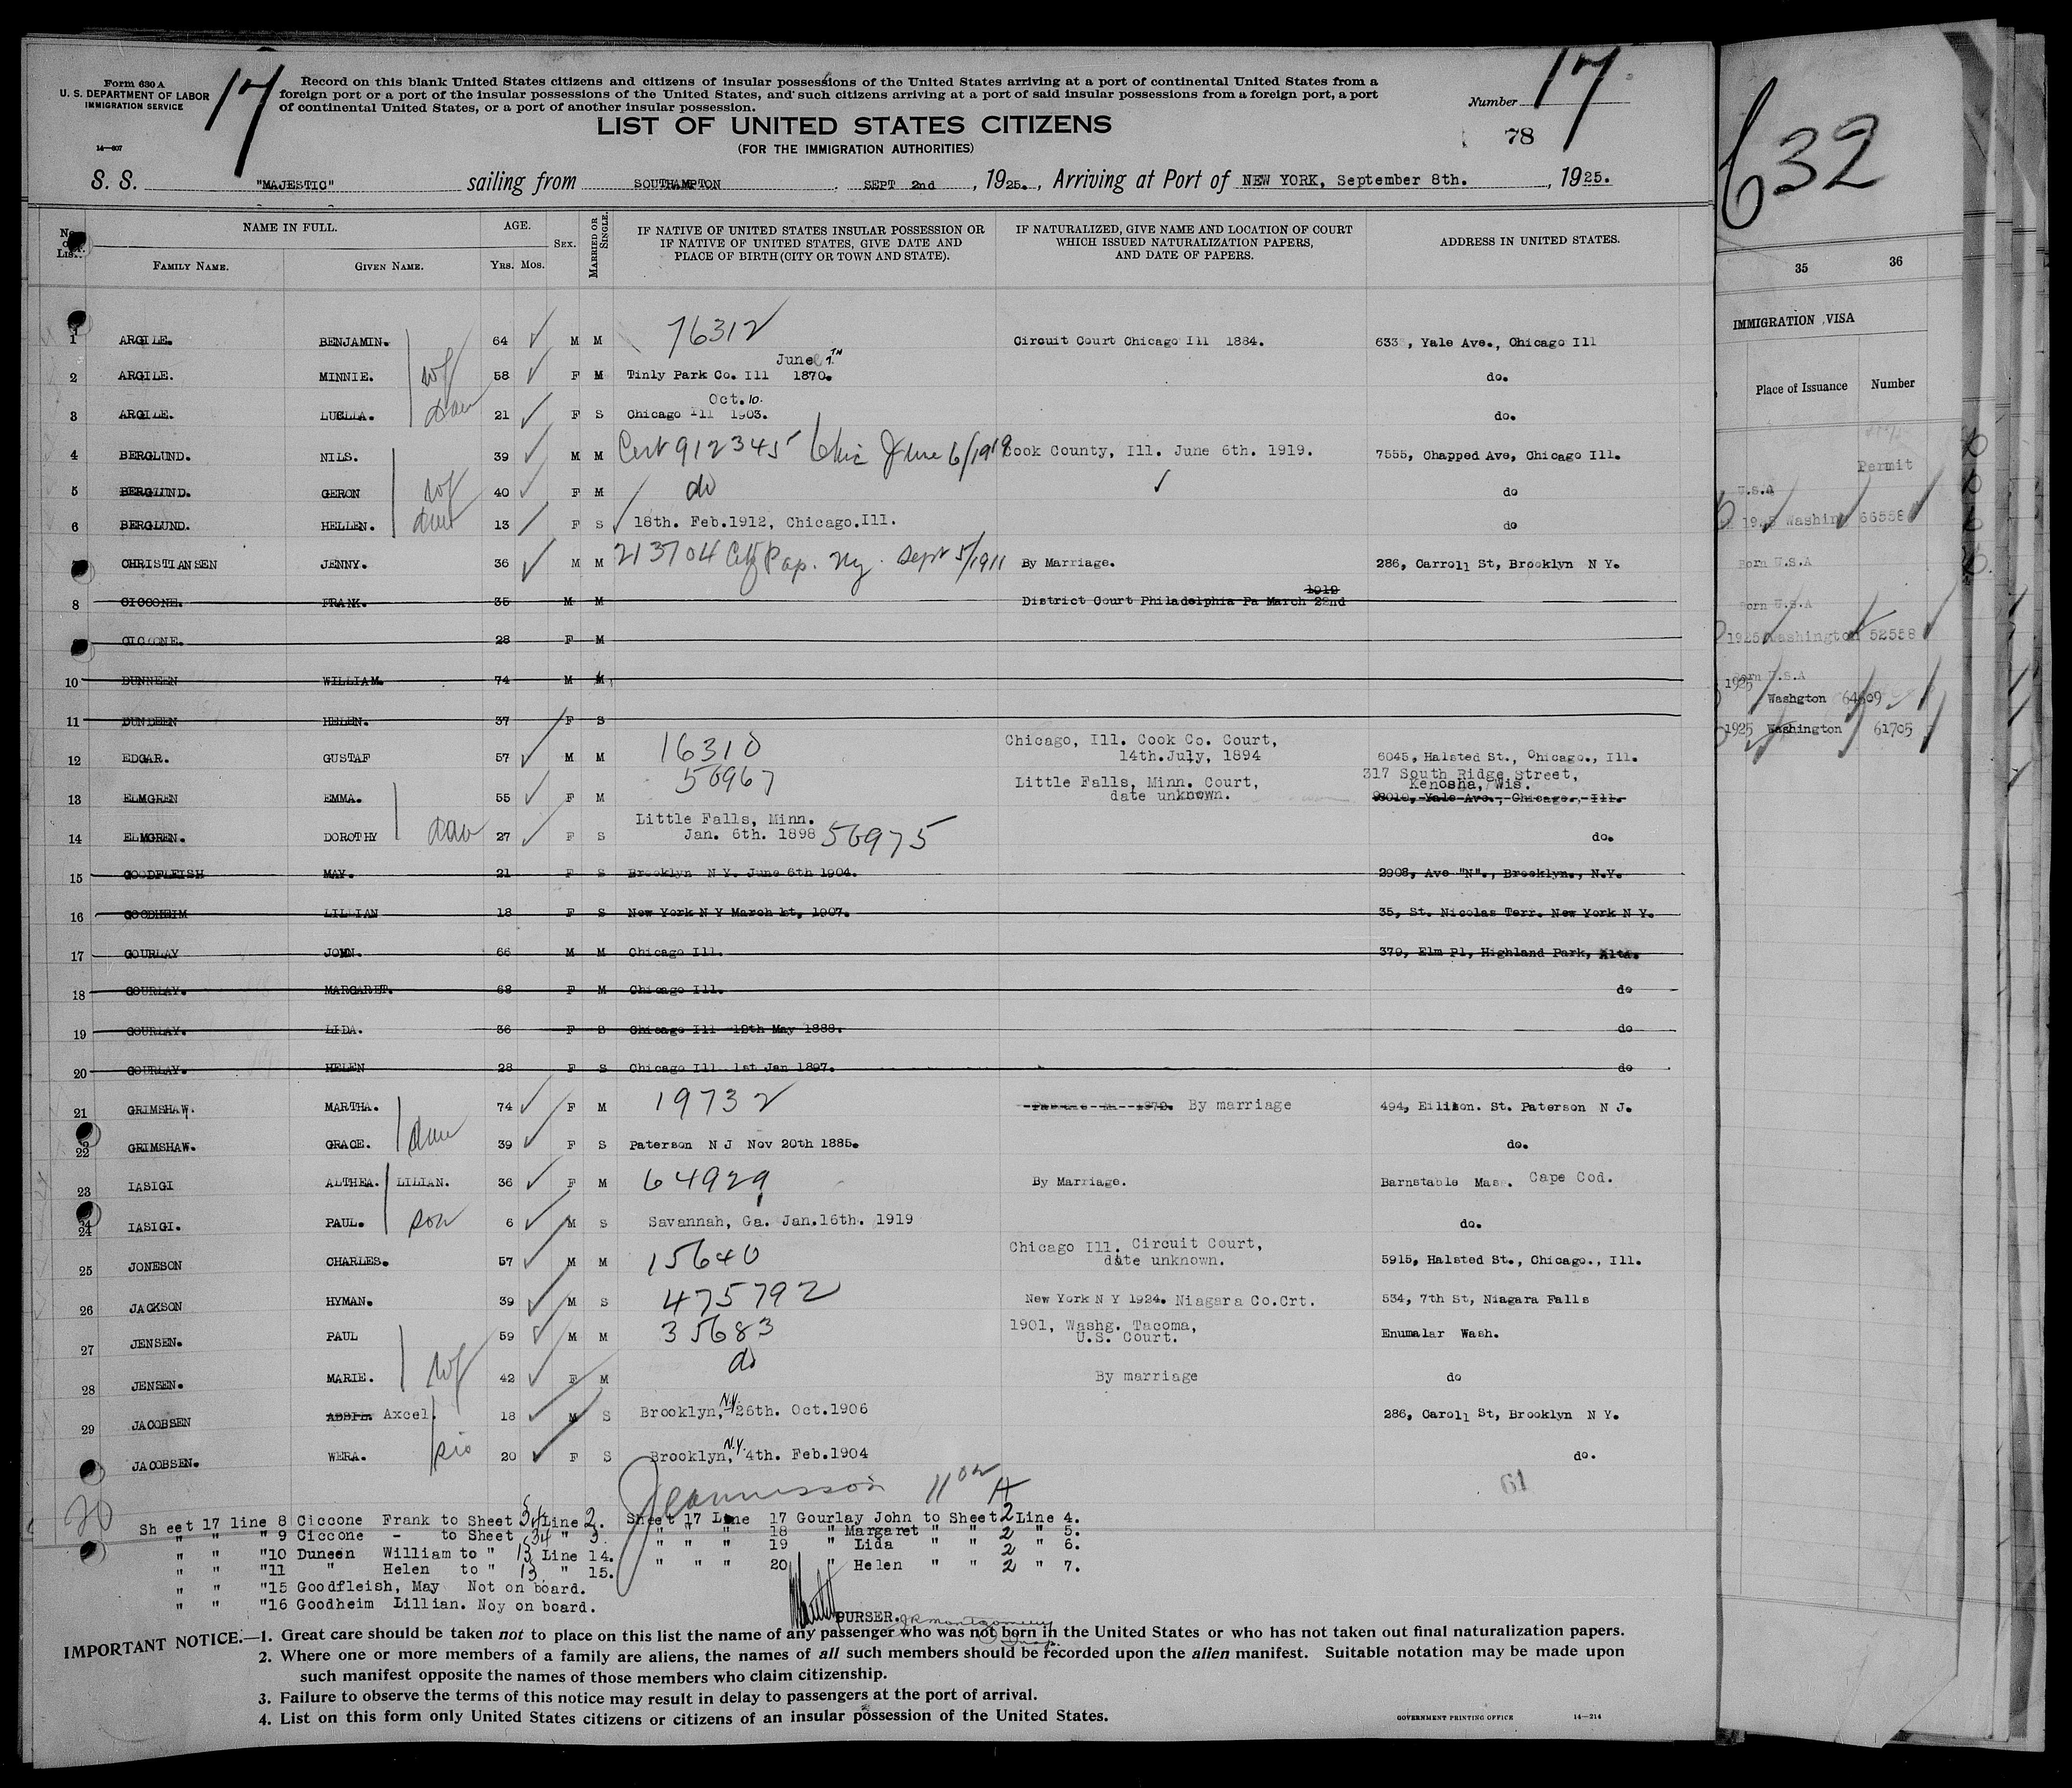 Form 630 A
U. S. DEPARTMENT OF LABOR
IMMIGRATION SERVICE
14—607
17
Record on this blank United States citizens and citizens of insular possessions of the United States arriving at a port of continental United States from a
foreign port or a port of the insular possessions of the United States, and such citizens arriving at a port of said insular possessions from a foreign port, a port
of continental United States, or a port of another insular possession.
Number 17
78
LIST OF UNITED STATES CITIZENS
(FOR THE IMMIGRATION AUTHORITIES)
S. S. "MAJESTIC" sailing from SOUTHAMPTON, SEPT 2nd, 1925., Arriving at Port of NEW YORK, September 8th., 1925.
No. on List. NAME IN FULL. FAMILY NAME. GIVEN NAME. AGE. Yrs. Mos. SEX. MARRIED OR SINGLE. IF NATIVE OF UNITED STATES INSULAR POSSESSION OR IF NATIVE OF UNITED STATES, GIVE DATE AND PLACE OF BIRTH (CITY OR TOWN AND STATE). IF NATURALIZED, GIVE NAME AND LOCATION OF COURT WHICH ISSUED NATURALIZATION PAPERS, AND DATE OF PAPERS. ADDRESS IN UNITED STATES.
1 ARGILE. BENJAMIN. 64 M M 76312 Circuit Court Chicago Ill 1884. 633, Yale Ave., Chicago Ill
2 ARGILE. MINNIE. wf 58 F M Tinly Park Co. Ill June 7TH 1870. do.
3 ARGILE. LUELLA. dau 21 F S Chicago Ill Oct. 10. 1903. do.
4 BERGLUND. NILS. 39 M M Cert 912345 Chic June 6/1919 Cook County, Ill. June 6th. 1919. 7555, Chapped Ave, Chicago Ill.
5 BERGLUND. GERON wf 40 F M do do
6 BERGLUND. HELLEN. dau 13 F S 18th. Feb.1912, Chicago.Ill. do
CHRISTIANSEN JENNY. 36 M M 213704 Ctz Pap. Ny. Sept 5/1911 By Marriage. 286, Carroll St, Brooklyn N Y.
8 CICCONE. FRANK. 35 M M District Court Philadelphia Pa March 22nd 1919
CICCONE. 28 F M
10 DUNNEEN WILLIAM. 74 M M
11 DUNDEEN HELEN. 37 F S
12 EDGAR. GUSTAF 57 M M 16310 Chicago, Ill. Cook Co. Court, 14th.July, 1894 6045, Halsted St., Chicago., Ill.
13 ELMGREN EMMA. 55 F M 56967 Little Falls, Minn. Court, date unknown. 317 South Ridge Street, Kenosha, Wis. Yale Ave., Chicago., Ill.
14 ELMGREN. DOROTHY dau 27 F S Little Falls, Minn. Jan. 6th. 1898 56975 do.
15 GOODFLEISH MAY. 21 F S Brooklyn N Y. June 6th 1904. 2908, Ave "N"., Brooklyn., N.Y.
16 GOODHEIM LILLIAN 18 F S New York N Y March 1st, 1907. 35, St. Nicolas Terr. New York N Y.
17 GOURLAY JOHN. 66 M M Chicago Ill. 379, Elm Pl, Highland Park,
18 GOURLAY. MARGARET. 68 F M Chicago Ill. do
19 GOURLAY. LIDA. 36 F S Chicago Ill 12th May 1888. do
20 GOURLAY. HELEN 28 F S Chicago Ill 1st Jan 1897. do
21 GRIMSHAW. MARTHA. 74 F M 19732 By marriage 494, Ellison. St. Paterson N J.
22 GRIMSHAW. GRACE. dau 39 F S Paterson N J Nov 20th 1885. do.
23 IASIGI ALTHEA. LILIAN. 36 F M 64929 By Marriage. Barnstable Mass. Cape Cod.
24 IASIGI. PAUL. son 6 M S Savannah, Ga. Jan.16th. 1919 do.
25 JONESON CHARLES. 57 M M 15640 Chicago Ill. Circuit Court, date unknown. 5915, Halsted St., Chicago., Ill.
26 JACKSON HYMAN. 39 M S 475792 New York N Y 1924. Niagara Co.Crt. 534, 7th St, Niagara Falls
27 JENSEN. PAUL 59 M M 35683 1901, Washg. Tacoma, U.S. Court. Enumalar Wash.
28 JENSEN. MARIE. wf 42 F M do By marriage do
29 JACOBSEN Axcel. 18 M S Brooklyn, N.Y. 26th. Oct.1906 286, Caroll St, Brooklyn N Y.
JACOBSEN. WERA. sis 20 F S Brooklyn, N.Y. 4th. Feb.1904 do.
61
20
Sheet 17 line 8 Ciccone Frank to Sheet 34 Line 2. Sheet 17 Line 17 Gourlay John to Sheet 2 Line 4.
" " " 9 Ciccone - to Sheet 34 " 3. " " " 18 " Margaret " " 2 " 5.
" " "10 Duneen William to " 13 Line 14. " " " 19 " Lida " " 2 " 6.
" " "11 " Helen to " 13 " 15. " " " 20 " Helen " " 2 " 7.
" " "15 Goodfleish, May Not on board.
" " "16 Goodheim Lillian. Noy on board.
PURSER.
IMPORTANT NOTICE.—1. Great care should be taken not to place on this list the name of any passenger who was not born in the United States or who has not taken out final naturalization papers.
2. Where one or more members of a family are aliens, the names of all such members should be recorded upon the alien manifest. Suitable notation may be made upon
such manifest opposite the names of those members who claim citizenship.
3. Failure to observe the terms of this notice may result in delay to passengers at the port of arrival.
4. List on this form only United States citizens or citizens of an insular possession of the United States.
GOVERNMENT PRINTING OFFICE 14—214
632
35 36
IMMIGRATION VISA
Place of Issuance Number
Permit
U.S.A
Washin 66558
Born U.S.A
Born U.S.A
1925 Washington 52558
Born U.S.A
1925 Washgton 64609
1925 Washington 61705